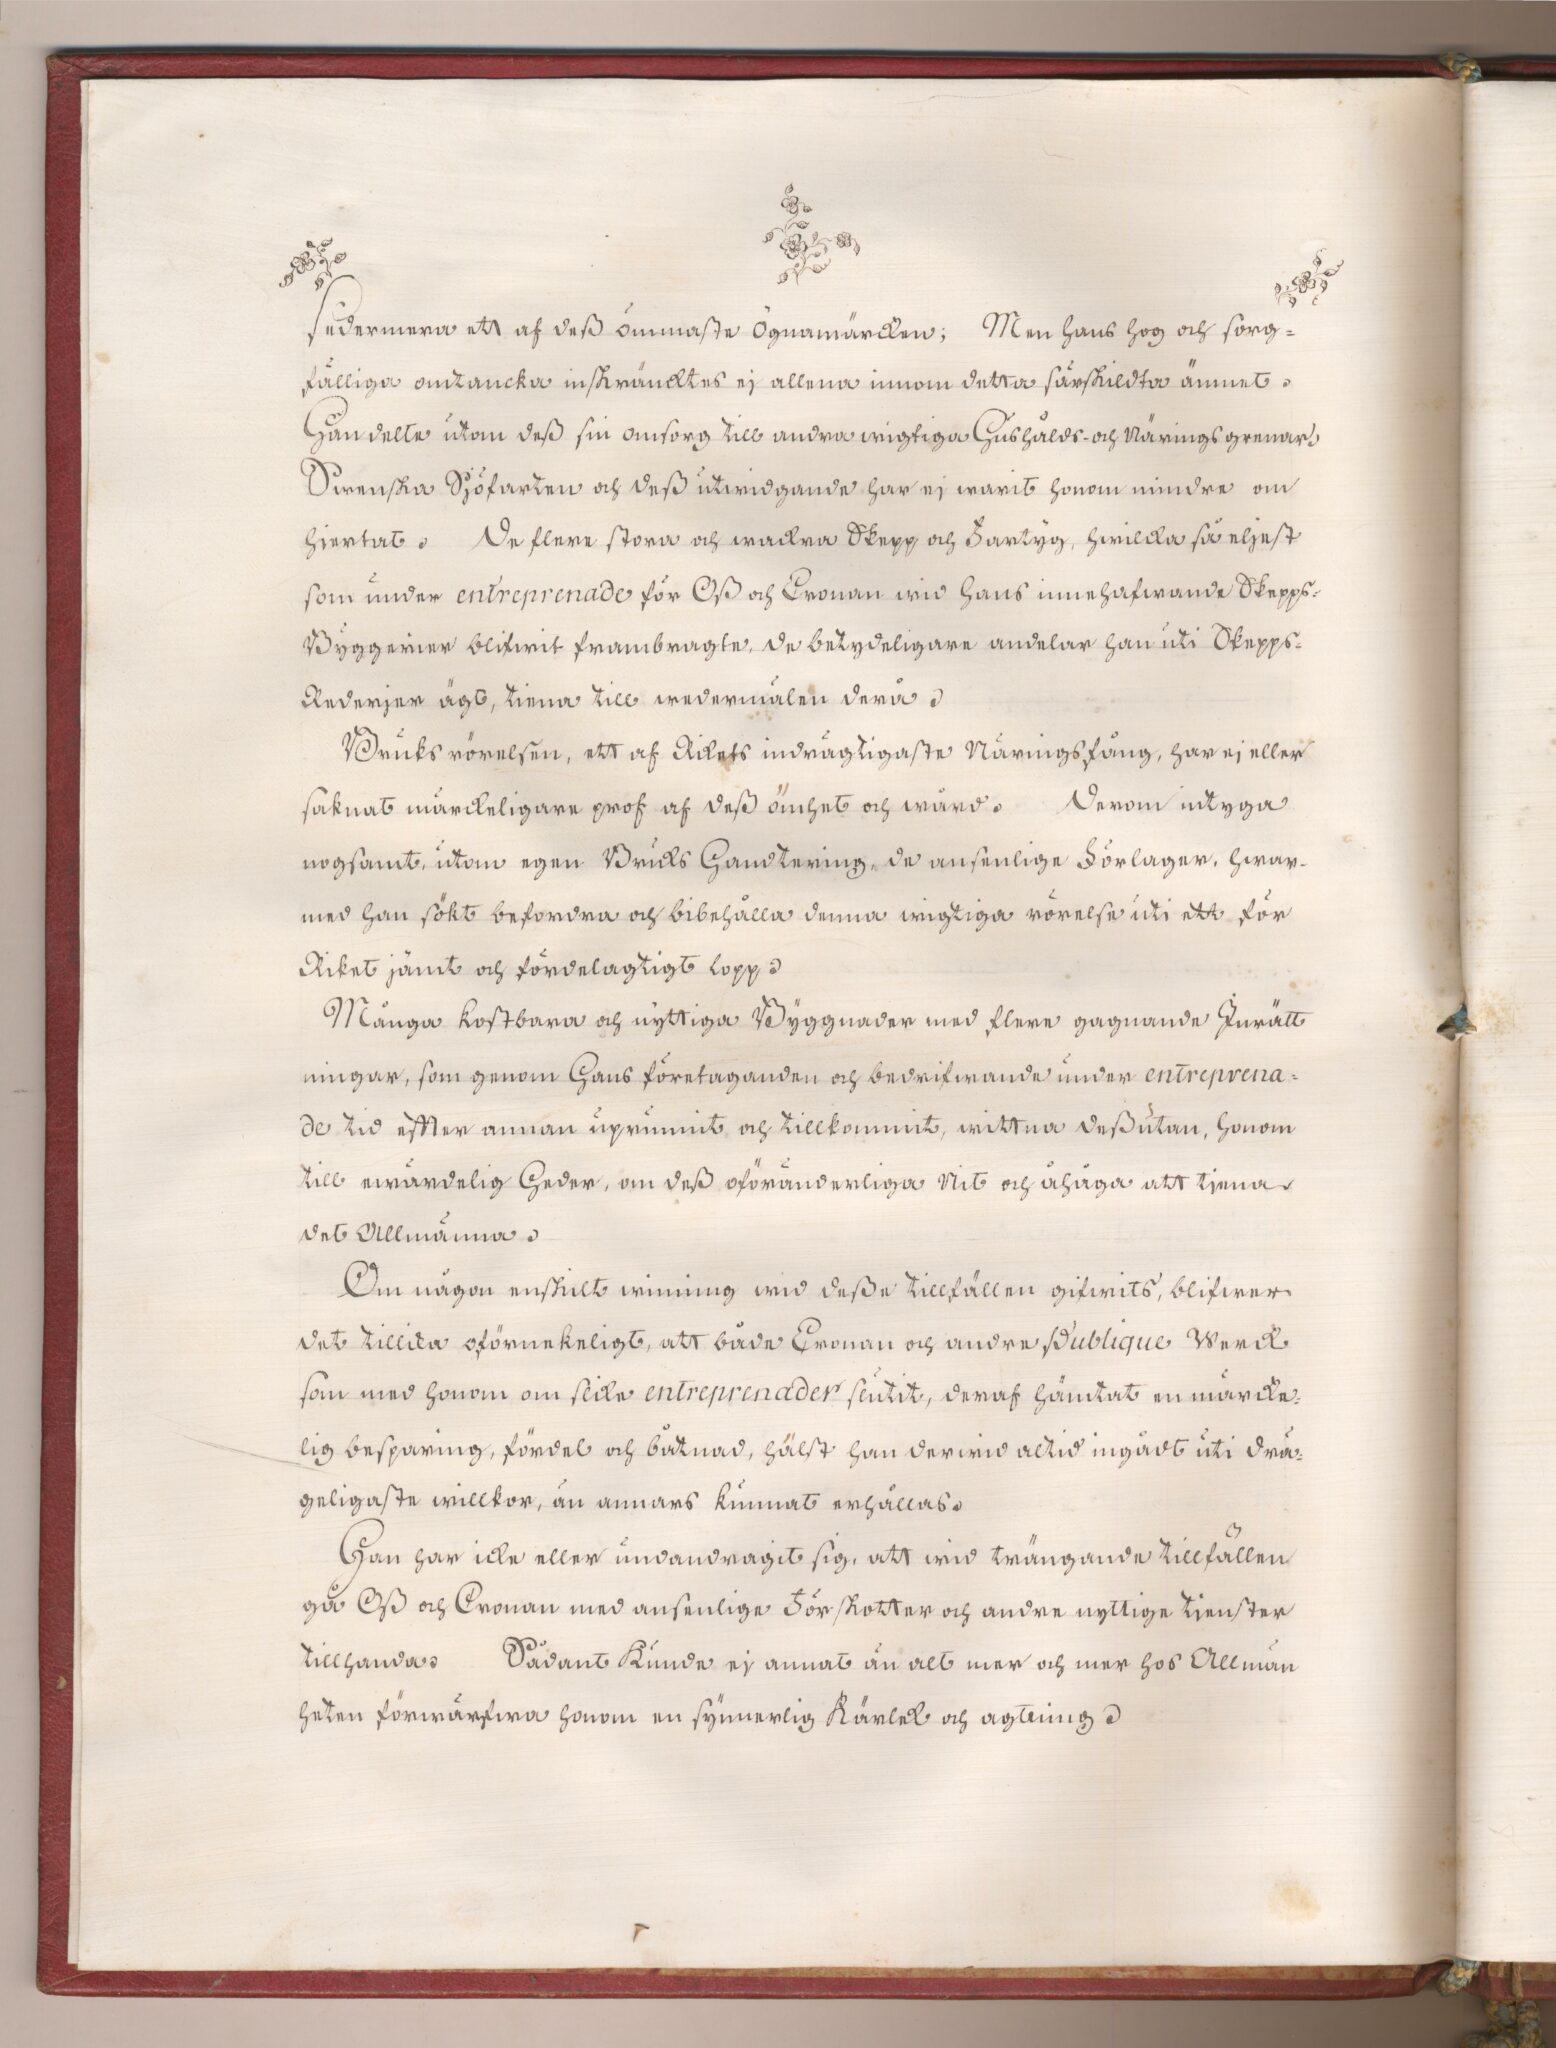 sedermera ett af deß ömmaste Ögnamärcken; Men hans hog och sorg=
fälliga omtancka inskräncktes ej allena innom detta särskildta ämnet.
Han delte utom deß sin omsorg till andra wigtiga Hushålds- och Närings grenar.
Swenska Sjöfarten och deß utwidgande har ej warit honom mindre om
hjertat. De flere stora och wackra Skepp och Fartyg, hwilcka så eljest
som under entreprenade för Oß och Cronan wid hans innehafwande Skepps=
Byggerier blifwit frambragte, de betydeligare andelar han uti Skepps=
Rederjer ägt, tiena till wedermälen derå.
Bruks rörelsen, ett af Rickets indrägtigaste Näringsfång, har ej eller
saknat märckeligare prof af deß ömhet och wård. Derom intyga
nogsamt, utom egen Brucks Handtering, de ansenlige Förlager, hwar-
med han sökt befordra och bibehålla denna wigtiga rörelse uti ett för
Riket jämt och fördelagtigt lopp.
Många kostbara och nyttiga Byggnader med flere gagnande Inrätt
ningar, som genom Hans företaganden och bedrifwande under entreprena=
de tid effter annan uprunnit och tillkommit, wittna deßutan, honom
till ewärdelig Heder, om deß oföränderliga Nit och åhåga att tjena
det Allmänna.
Om någon enskilt winning wid deße tillfällen gifwits, blifwer
det tillika oförnekeligt, att både Cronan och andre Publique Werck
som med honom om slicke entreprenader slutit, deraf hämtat en märcke=
lig besparing, fördel och båtnad, hälst han derwid altid ingådt uti drä=
geligaste willkor, än annars kunnat erhållas.
Han har icke eller undandragit sig, att wid trängande tillfällen
gå Oß och Cronan med ansenlige Förskotter och andre nyttige tjenster
tillhanda. Sådant Kunde ej annat än alt mer och mer hos Allmän
heten förwärfwa honom en synnerlig Kärlek och agtning.